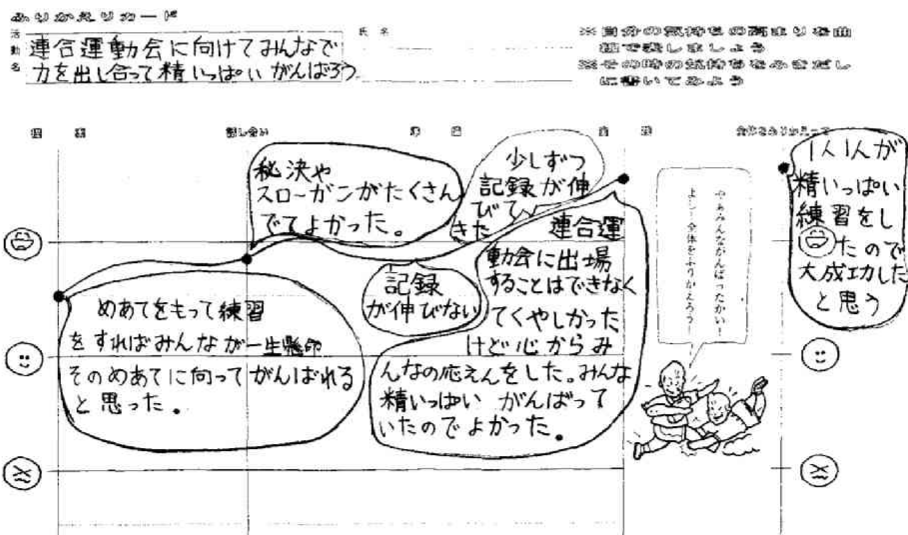 ふりかえりカード
活動名
連合運動会に向けてみんなで
力を出し合って精いっぱいがんばろう
氏名
※自分の気持ちの高まりを曲
線で表しましょう
※その時の気持ちをふきだし
に書いてみよう
話し合い
準備
全体をふりかえって
めあてをもって練習
をすればみんなが一生懸命
そのめあてに向ってがんばれる
と思った。
秘決や
スローガンがたくさん
でてよかった。
記録
が伸びない
少しずつ
記録が伸
びて
きた
連合運
動会に出場
することはできなく
てくやしかった
けど心からみ
んなの応えんをした。みんな
精いっぱい がんばって
いたのでよかった。
やぁみんながんばったかい!
よし!全体をふりかえろう!
1人1人が
精いっぱい
練習をし
たので
大成功した
と思う